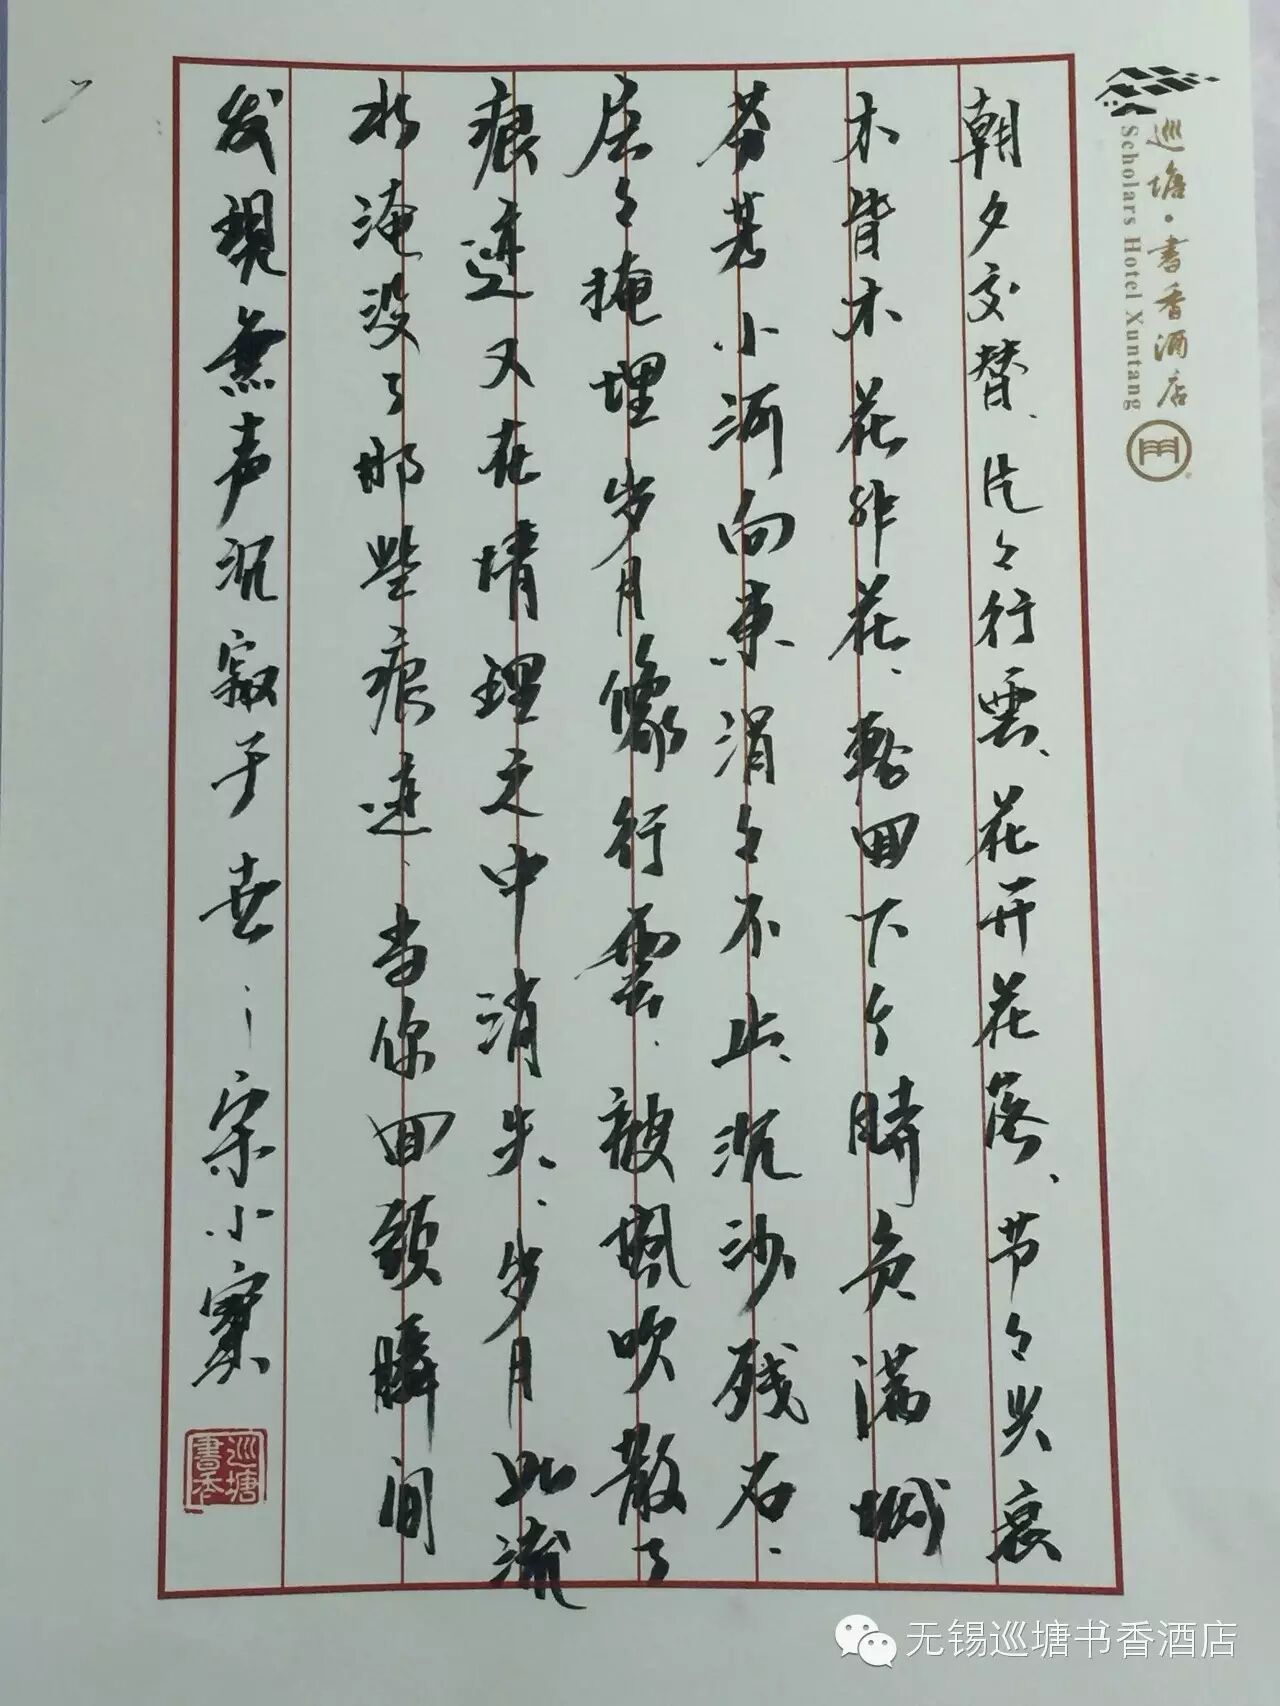 朝夕交替、片々行雲、花开花落、节々兴衰
木皆木花非花、暂回下今時负满城
芬芳小河向東涓々不止、沉沙残石.
层々掩埋岁月像行雲.被風吹散了
痕迹又在情理之中消失、岁月如流
水淹没了那些痕迹、当你回頭瞬间
发现無声沉寂于世
宋小寶
巡塘書香
巡塘·書香酒店
Scholars Hotel Xuntang
无锡巡塘书香酒店